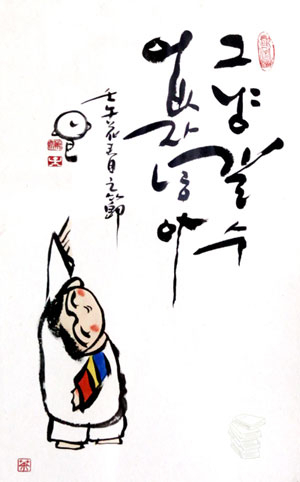 그냥갈수
없잖아
壬午花月之節